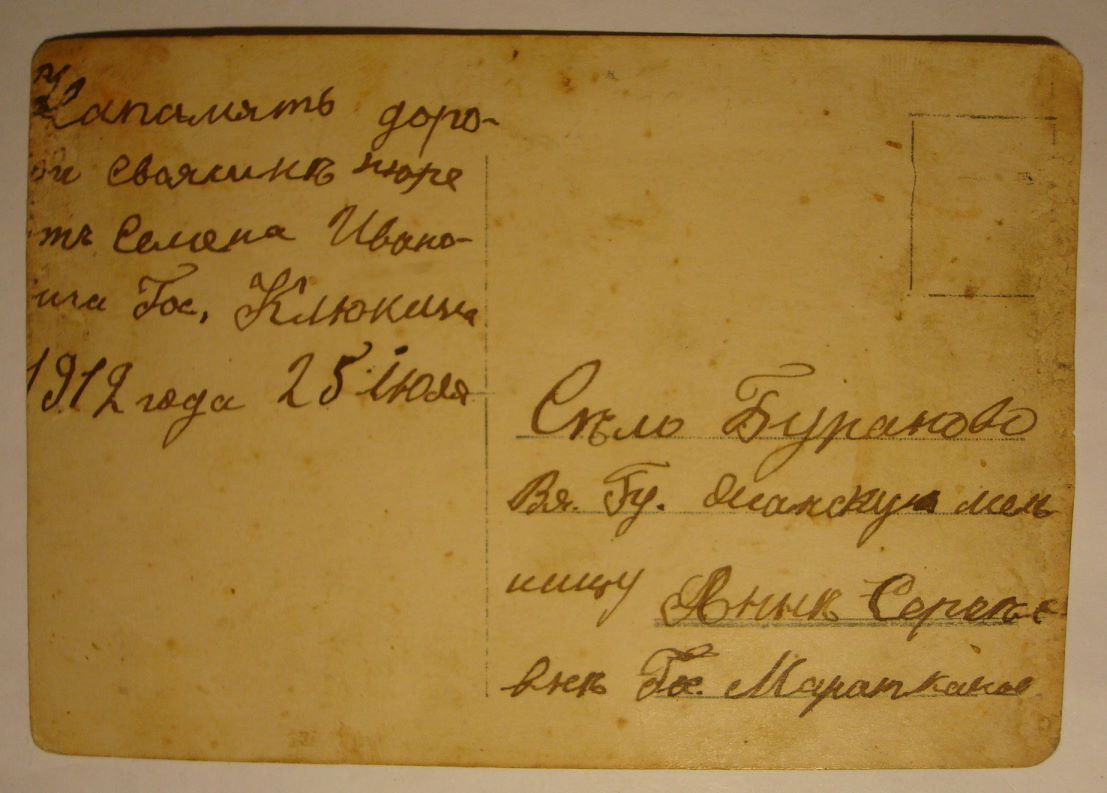 Напамять доро-
ой своячинѣ нюре
отъ Семена Ивано-
ича Гос. Клюкина
1912 года 25 іюля
Сѣло Бураново
Вя. Гу. мель
ницу Яныѣ Сергѣе
внѣ Гос. Мараткановой